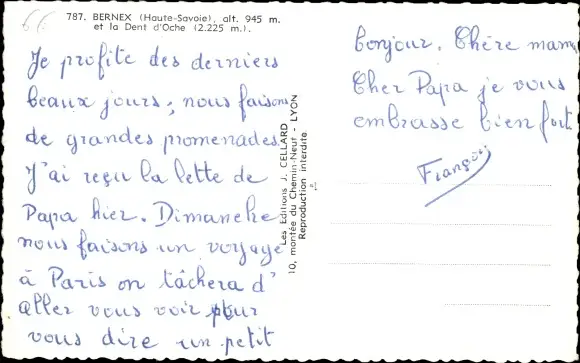 787. BERNEX (Haute-Savoie), alt. 945 m.
et la Dent d'Oche (2.225 m.).
Je profite des derniers
beaux jours, nous faisons
de grandes promenades.
J'ai reçu la lette de
Papa hier. Dimanche
nous faisons un voyage
à Paris on tâchera d'
aller vous voir pour
vous dire un petit
bonjour. Chère mam
Cher Papa je vous
embrasse bien fort.
François
Les Editions J. CELLARD
10, montée du Chemin-Neuf - LYON
Reproduction interdite